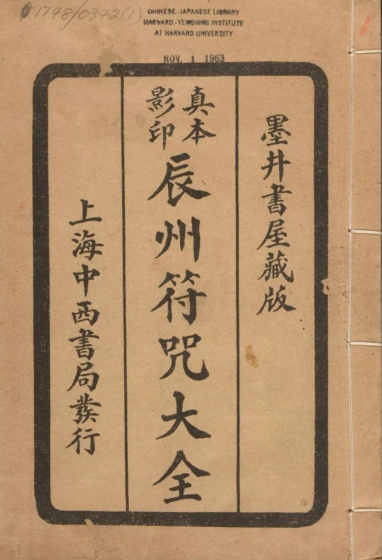 T1748/0342(1)
CHINESE-JAPANESE LIBRARY
HARVARD-YENCHING INSTITUTE
AT HARVARD UNIVERSITY
NOV 1 1963
墨井書屋藏版
真本
影印
辰州符咒大全
上海中西書局發行